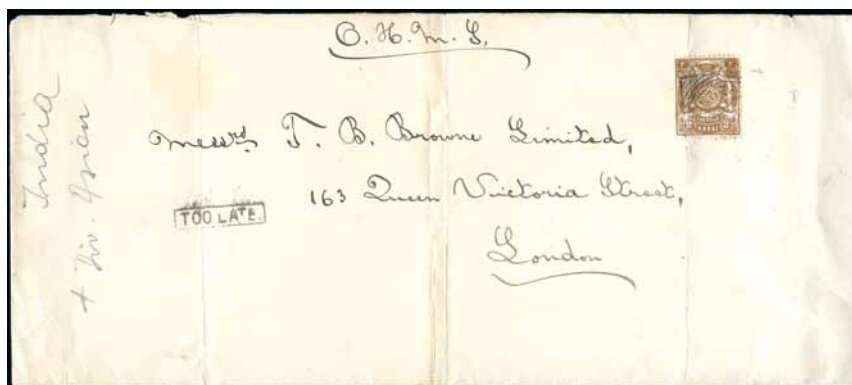 O.H.M.S.
Messrs T. B. Browne Limited,
163 Queen Victoria Street,
London
TOO LATE.
India
+ Div. Asian